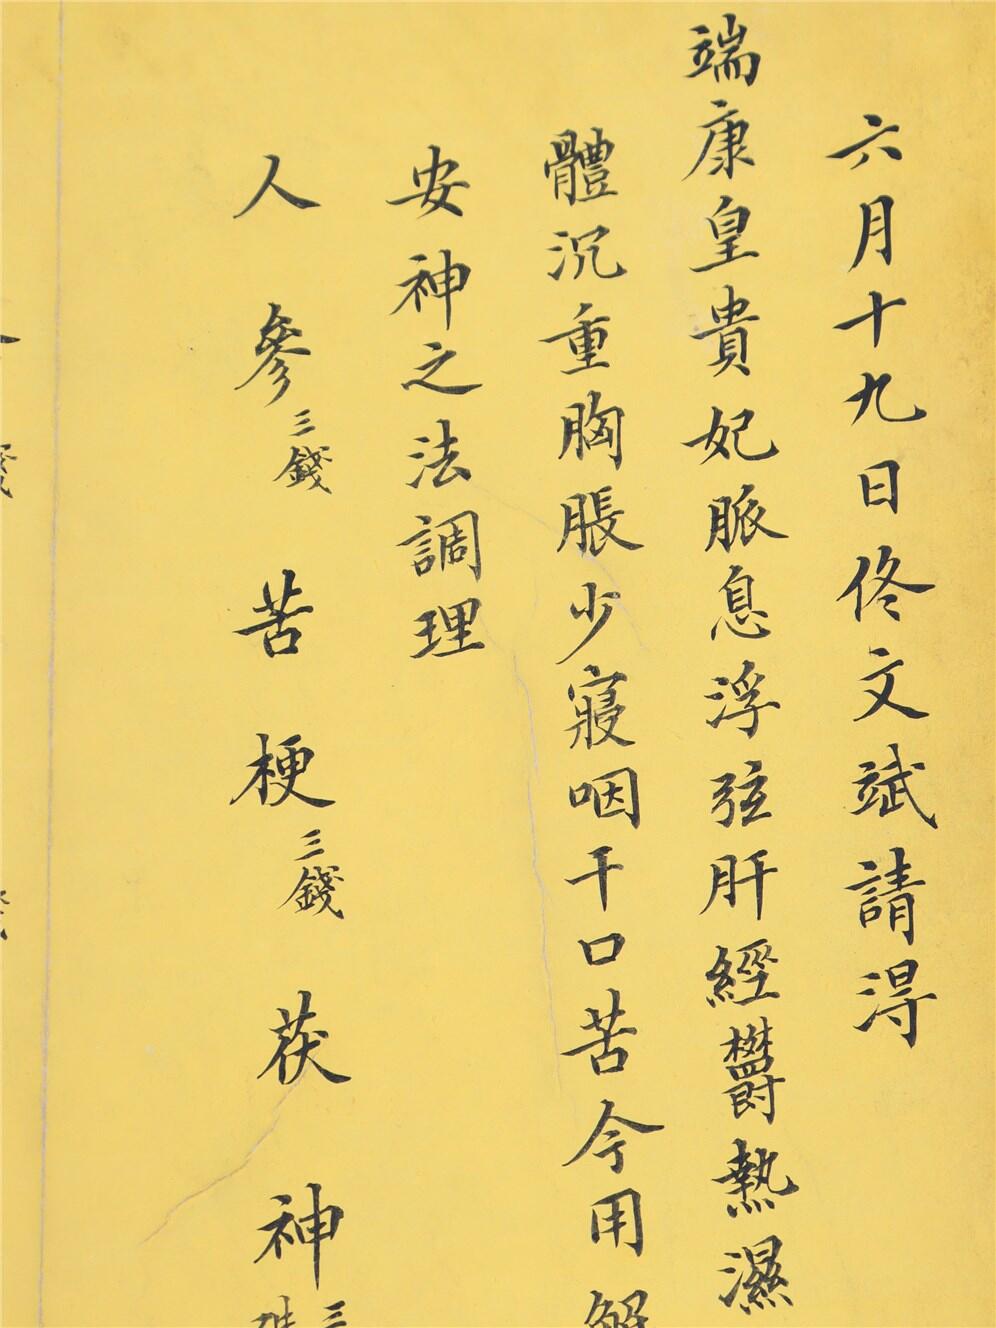 六月十九日佟文斌請得
端康皇貴妃脈息浮弦肝經欝熱濕
體沉重胸脹少寢咽干口苦今用解
安神之法調理
人參三錢 苦梗三錢 茯神三